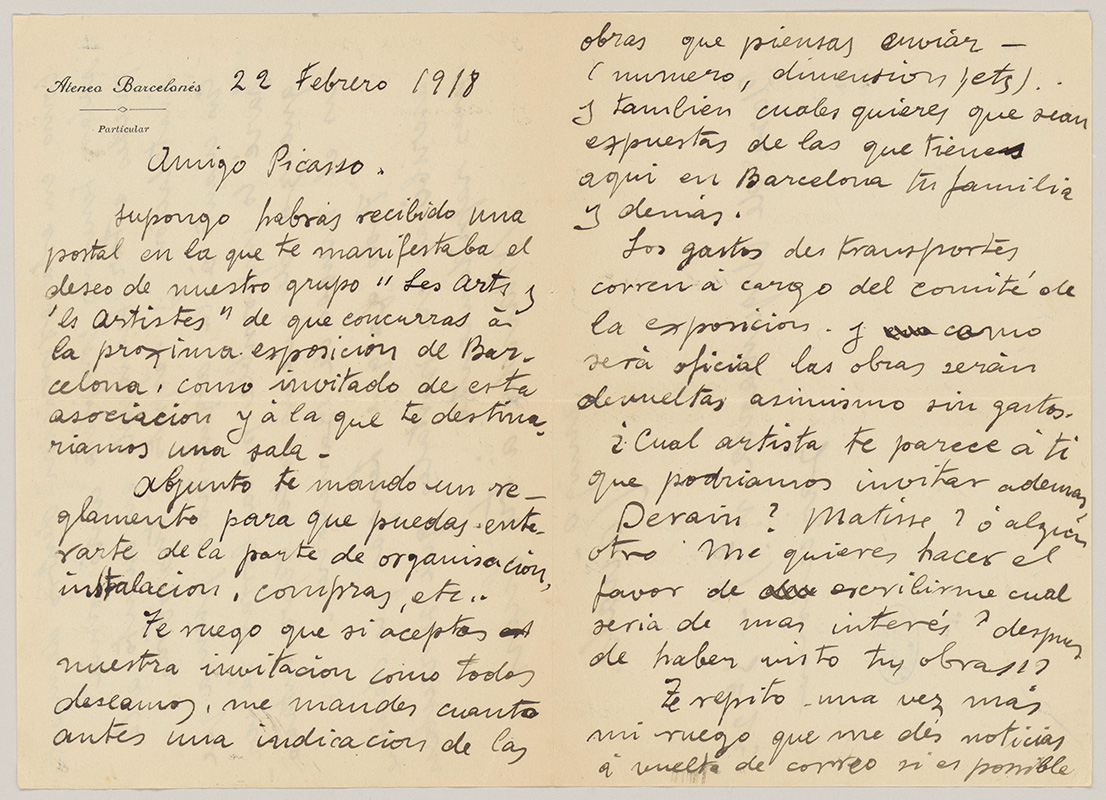 Ateneo Barcelonés 22 Febrero 1918
Particular
Amigo Picasso.
Supongo habrás recibido una
postal en la que te manifestaba el
deseo de nuestro grupo "Les Arts y
'ls Artistes" de que concurras à
la proxima esposición de Bar-
celona, como invitado de esta
asociacion y à la que te destina-
riamos una sala -
Adjunto te mando un re-
glamento para que puedas ente-
rarte de la parte de organisacion,
instalacion, compras, etc..
Te ruego que si aceptas
nuestra invitacion como todos
deseamos, me mandes cuanto
antes una indicacion de las
obras que piensas enviár -
(numero, dimension, etz)..
y tambien cuales quieres que sean
expuestas de las que tienen
aqui en Barcelona tu familia
y demás.
Los gastos des transportes
corren à cargo del comité de
la exposicion. y como
será oficial las obras serán
devueltas asimismo sin gastos.
¿Cual artista te parece à ti
que podriamos invitar ademas
Derain? Matisse? ó algún
otro Me quieres hacer el
favor de escribirme cual
seria de mas interés? despues
de haber visto tus obras??
Te repito una vez más
mi ruego que me dés noticias
à vuelta de correo si es possible